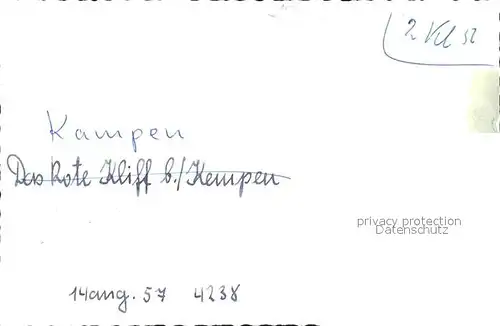 2 Kl 52
Kampen
Das Rote Kliff b./Kempen
privacy protection
Datenschutz
14 aug. 57 4238